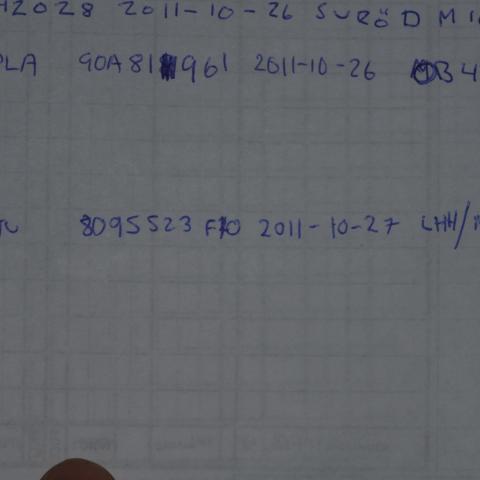 HZ028 2011-10-26 SURÖD MI
PLA 90A81 961 2011-10-26 B4
8095523 F10 2011-10-27 LHH/